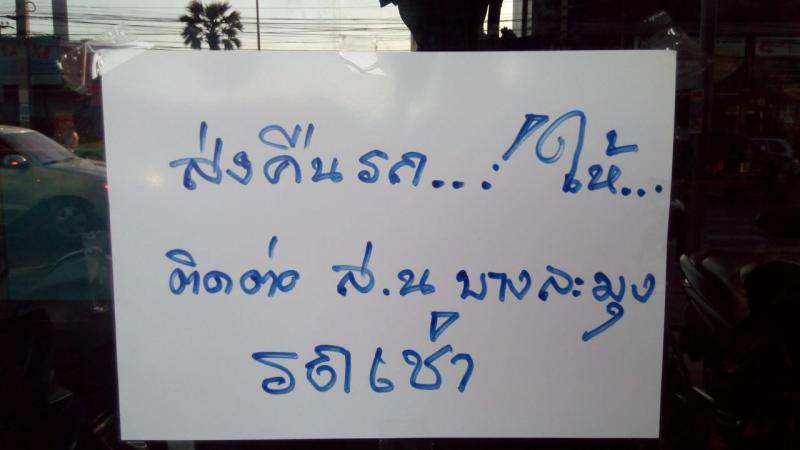 ส่งคืนรถ...! ให้...
ติดต่อ ส.น บางละมุง
รถเช่า